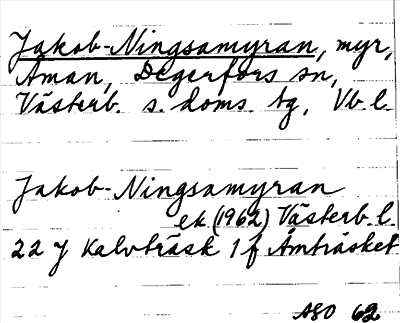 Jakob-Ningsamyran, myr,
Åman, Degerfors sn,
Västerb. s. doms. tg, Vb. l.
Jakob-Ningsamyran
ek. (1962) Västerb. l.
22 J Kalvträsk 1 f Åmträsket
ASO 62